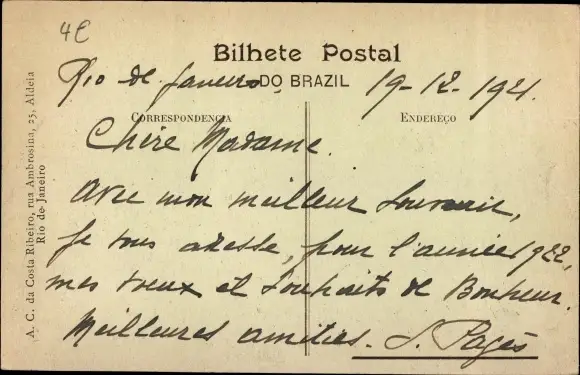 4€
Bilhete Postal
DO BRAZIL
Rio de Janeiro, 19-12-1921.
CORRESPONDENCIA
ENDEREÇO
Chère Madame.
Avec mon meilleur Souvenir,
Je vous adresse, pour l'année 1922,
mes voeux et Souhaits de Bonheur.
Meilleures amitiés. J. Pagès
A. C. da Costa Ribeiro, rua Ambrosina, 25, Aldeia
Rio de Janeiro